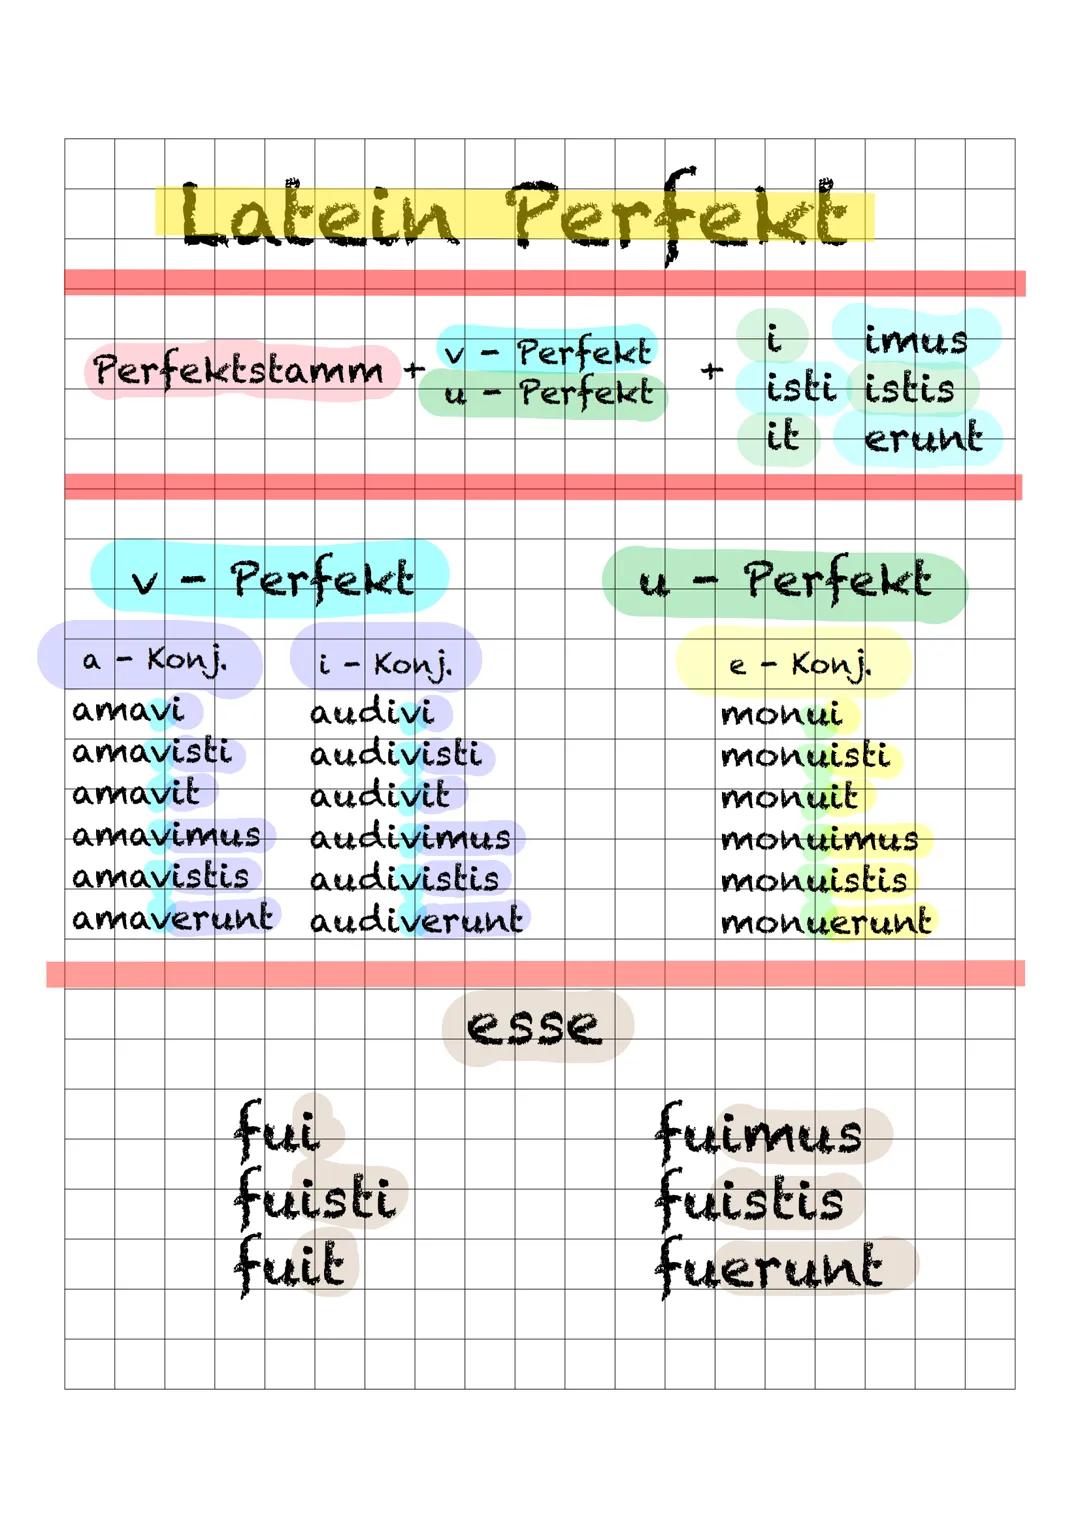 Latein Perfekt
Perfektstamm + v - Perfekt
u - Perfekt
+ i imus
isti istis
it erunt
v - Perfekt
a - Konj. i - Konj.
amavi audivi
amavisti audivisti
amavit audivit
amavimus audivimus
amavistis audivistis
amaverunt audiverunt
u - Perfekt
e - Konj.
monui
monuisti
monuit
monuimus
monuistis
monuerunt
esse
fui
fuisti
fuit
fuimus
fuistis
fuerunt